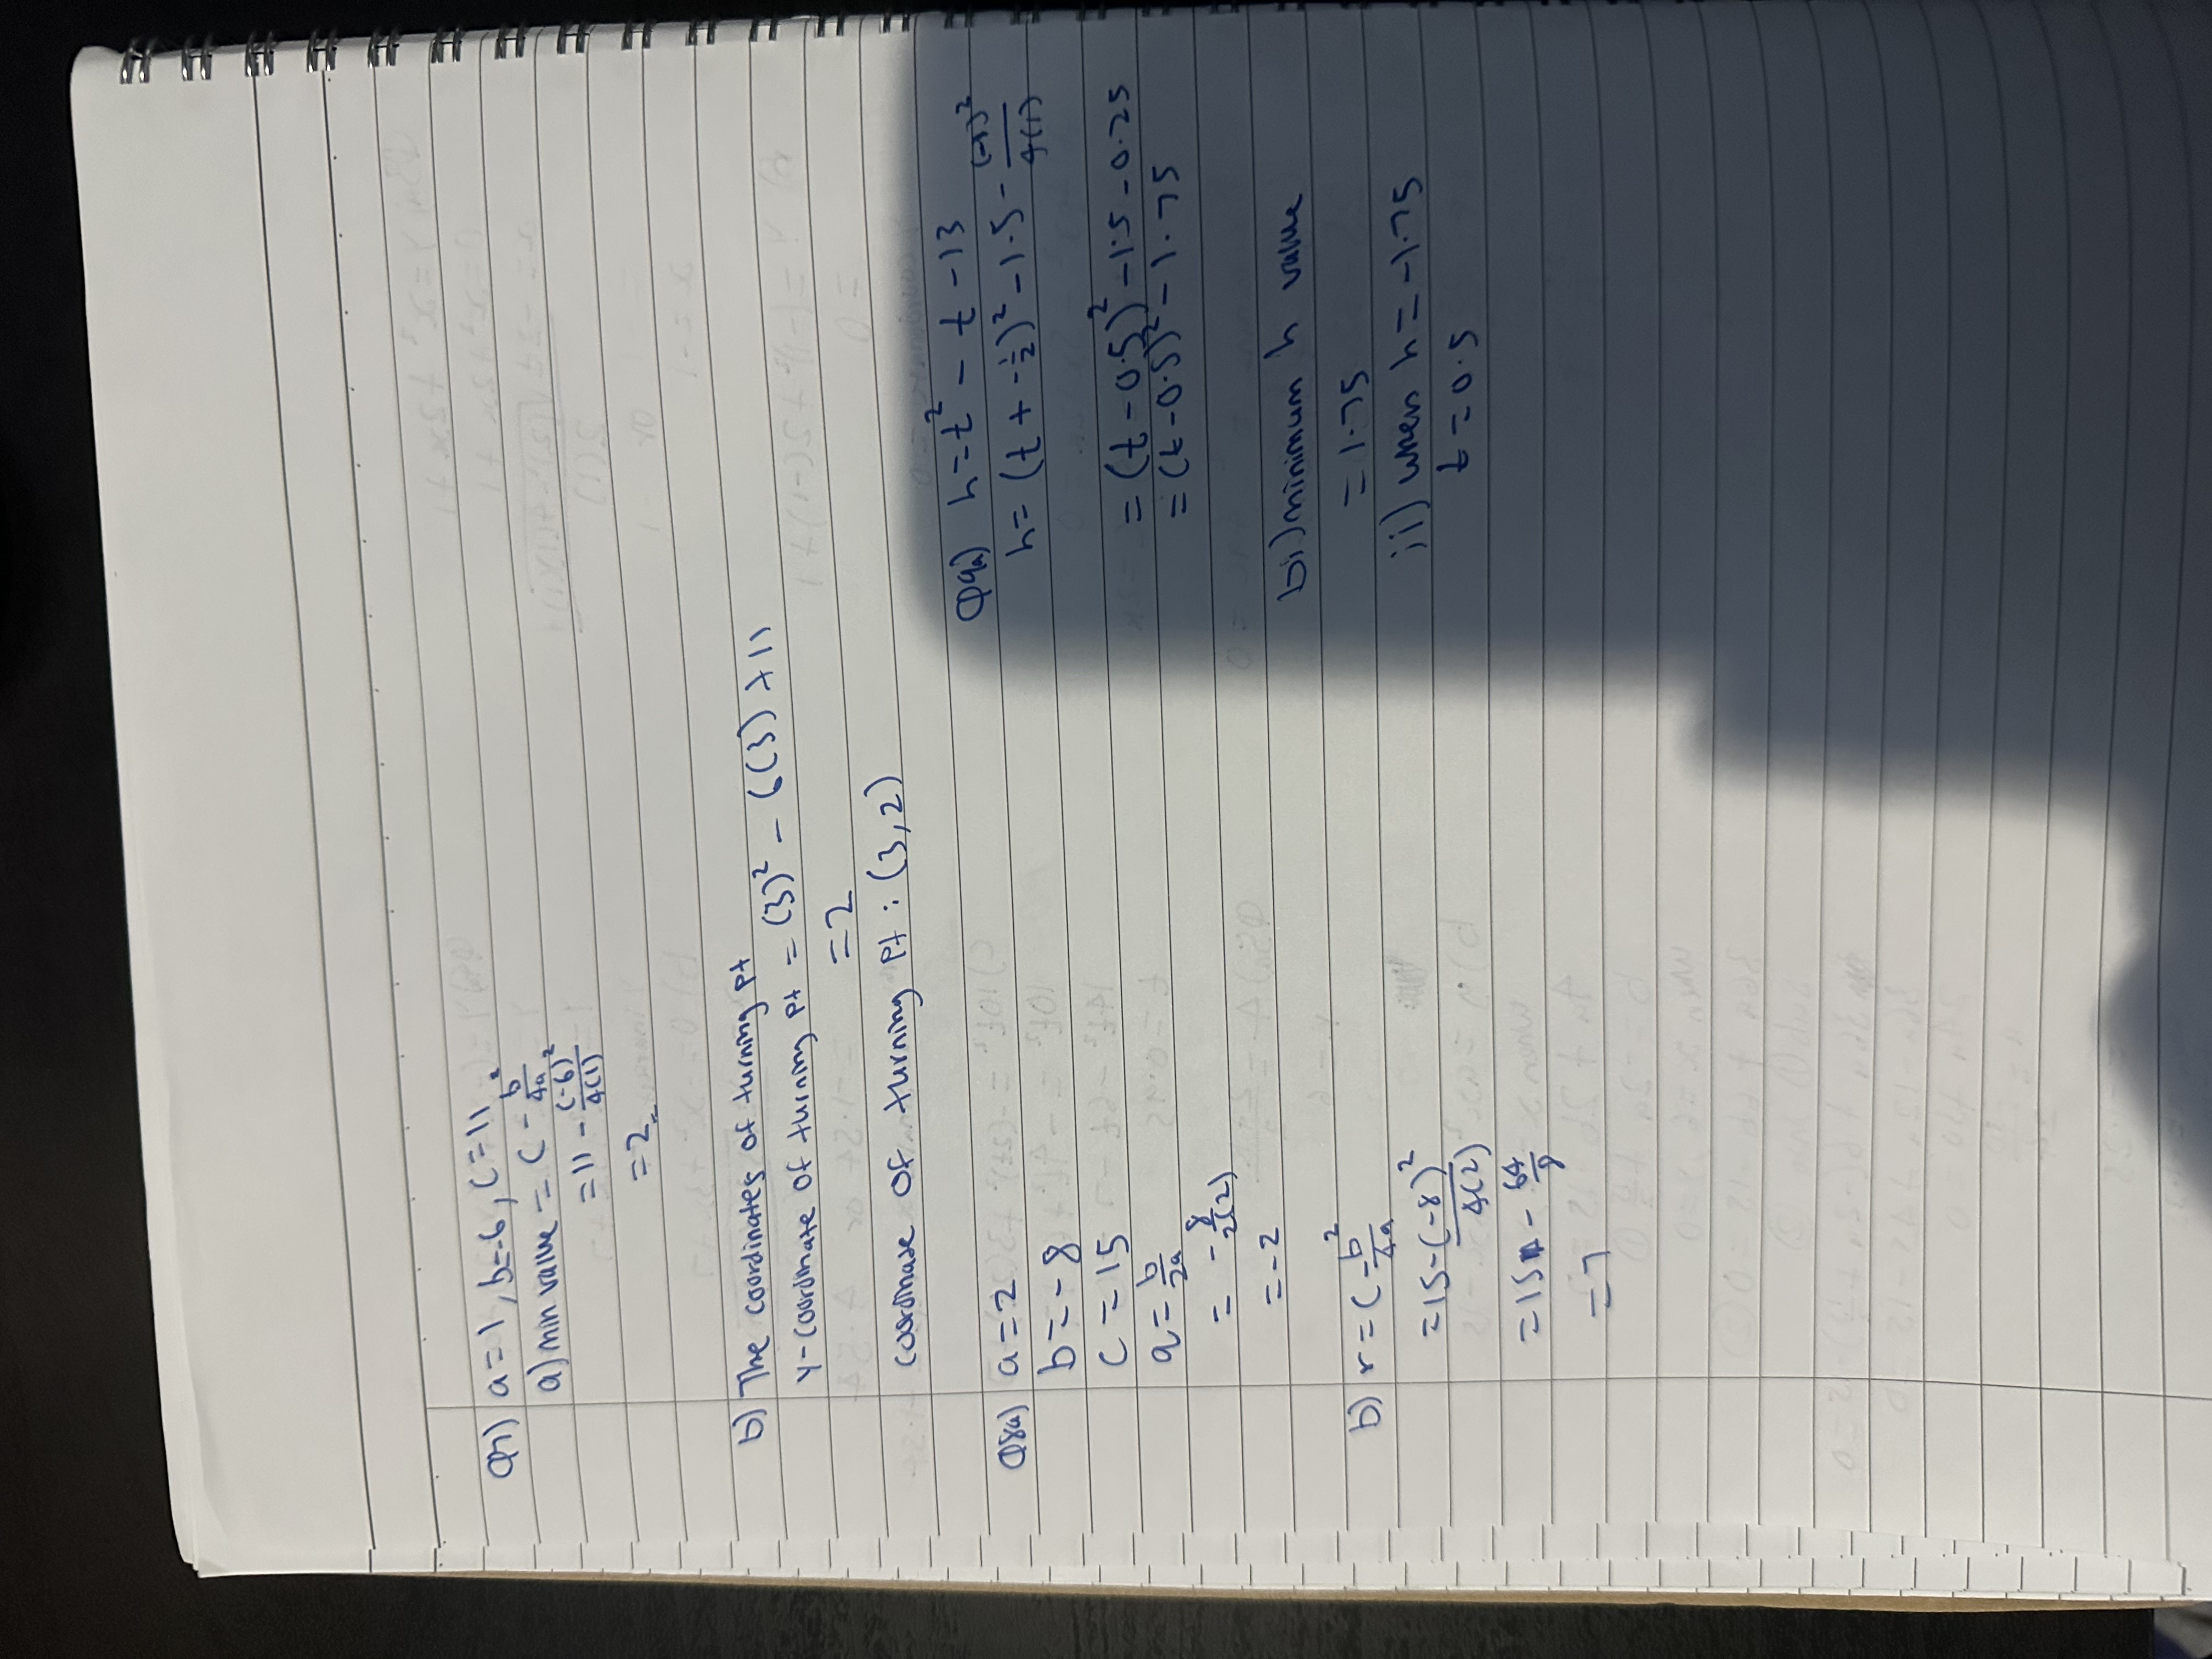 Q7) a = 1, b = -6, c = 11
a) min value = c - b²/4a
= 11 - (-6)²/4(1)
= 2
b) The coordinates of turning pt
y-coordinate of turning pt = (3)² - 6(3) + 11
= 2
coordinate of turning pt : (3,2)
Q8a) a = 2
b = -8
c = 15
q = b/2a
= -8/2(2)
= -2
b) r = c - b²/4a
= 15 - (-8)²/4(2)
= 15 - 64/8
= 7
Q9a) h = t² - t - 13
h = (t + -1/2)² - 1.5 - (-1)²/4(1)
= (t - 0.5)² - 1.5 - 0.25
= (t - 0.5)² - 1.75
bi) minimum h value
= 1.75
ii) when h = -1.75
t = 0.5